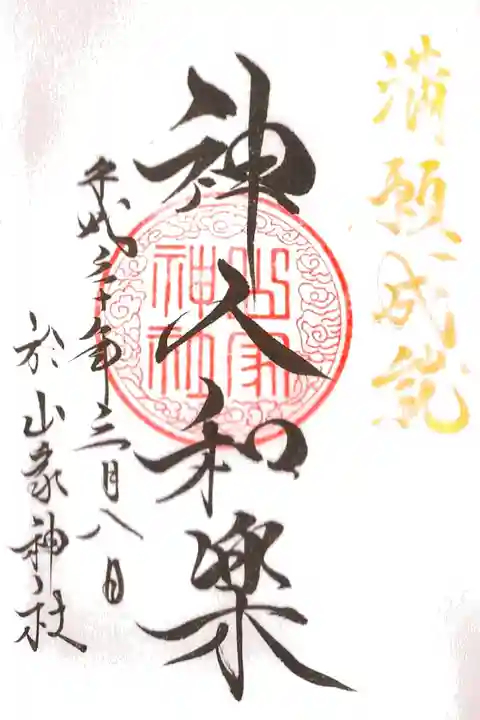 満願成就
神人和楽
山家
神社
平成三十年三月八日
於山家神社